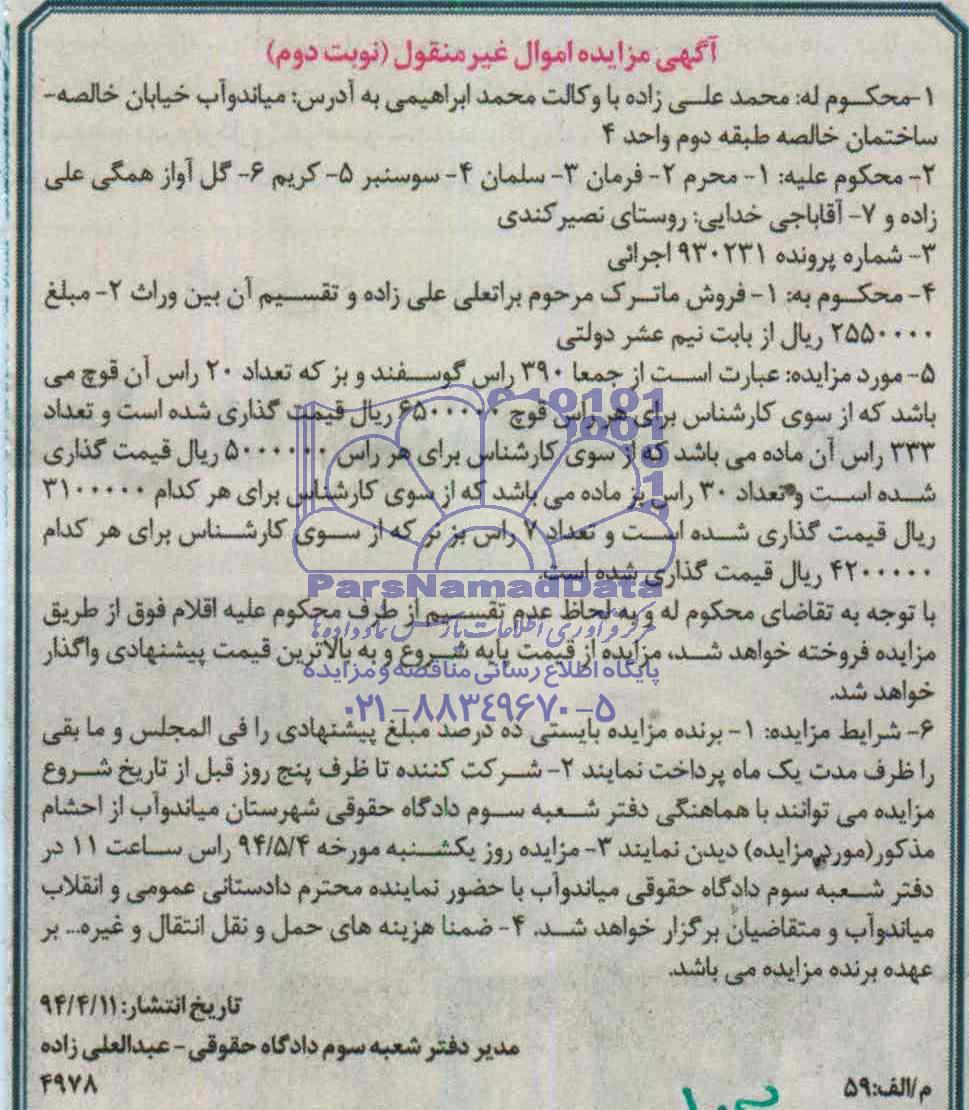 آگهی مزایده اموال غیر منقول (نوبت دوم)
۱-محکوم له: محمد علی زاده با وکالت محمد ابراهیمی به آدرس: میاندوآب خیابان خالصه-
ساختمان خالصه طبقه دوم واحد ۴
۲- محکوم علیه: ۱- محرم ۲- فرمان ۳- سلمان ۴- سوسنبر ۵- کریم ۶- گل آواز همگی علی
زاده و ۷- آقاباجی خدایی: روستای نصیرکندی
۳- شماره پرونده ۹۳۰۲۳۱ اجرائی
۴- محکوم به: ۱- فروش ماترک مرحوم براتعلی علی زاده و تقسیم آن بین وراث ۲- مبلغ
۲۵۵۰۰۰۰ ریال از بابت نیم عشر دولتی
۵- مورد مزایده: عبارت است از جمعا ۳۹۰ راس گوسفند و بز که تعداد ۲۰ راس آن قوچ می
باشد که از سوی کارشناس برای هر راس قوچ ۶۵۰۰۰۰۰ ریال قیمت گذاری شده است و تعداد
۳۳۳ راس آن ماده می باشد که از سوی کارشناس برای هر راس ۵۰۰۰۰۰۰ ریال قیمت گذاری
شده است و تعداد ۳۰ راس بز ماده می باشد که از سوی کارشناس برای هر کدام ۳۱۰۰۰۰۰
ریال قیمت گذاری شده است و تعداد ۷ راس بز نر که از سوی کارشناس برای هر کدام
۴۲۰۰۰۰۰ ریال قیمت گذاری شده است.
با توجه به تقاضای محکوم له و به لحاظ عدم تقسیم از طرف محکوم علیه اقلام فوق از طریق
مزایده فروخته خواهد شد، مزایده از قیمت پایه شروع و به بالاترین قیمت پیشنهادی واگذار
خواهد شد.
۶- شرایط مزایده: ۱- برنده مزایده بایستی ده درصد مبلغ پیشنهادی را فی المجلس و ما بقی
را ظرف مدت یک ماه پرداخت نمایند ۲- شرکت کننده تا ظرف پنج روز قبل از تاریخ شروع
مزایده می توانند با هماهنگی دفتر شعبه سوم دادگاه حقوقی شهرستان میاندوآب از احشام
مذکور(مورد مزایده) دیدن نمایند ۳- مزایده روز یکشنبه مورخه ۹۴/۵/۴ راس ساعت ۱۱ در
دفتر شعبه سوم دادگاه حقوقی میاندوآب با حضور نماینده محترم دادستانی عمومی و انقلاب
میاندوآب و متقاضیان برگزار خواهد شد. ۴- ضمنا هزینه های حمل و نقل انتقال و غیره... بر
عهده برنده مزایده می باشد.
تاریخ انتشار: ۹۴/۴/۱۱
مدیر دفتر شعبه سوم دادگاه حقوقی - عبدالعلی زاده
م/الف:۵۹ ۴۹۷۸
ParsNamadData
مرکز فرآوری اطلاعات پارس نماد داده‌ها
پایگاه اطلاع رسانی مناقصه و مزایده
۰۲۱-۸۸۳۴۹۶۷۰-۵